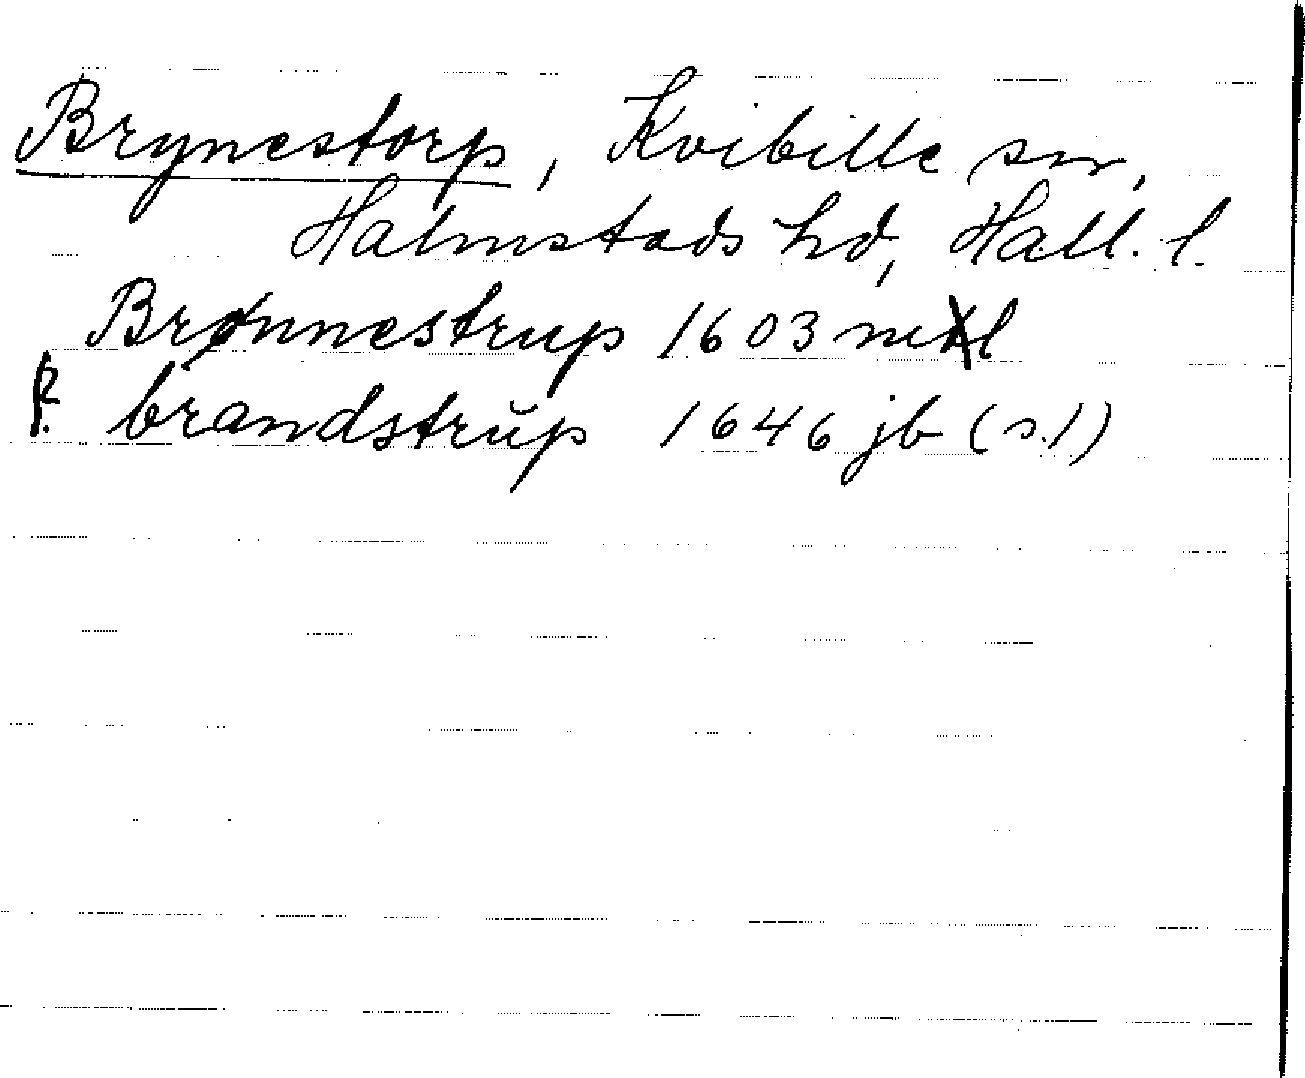 Brynestorp, Kvibille sn,
Halmstads hd, Hall. l.
Brønnestrup 1603 mtl
? brandstrŭp 1646 jb (s.1)